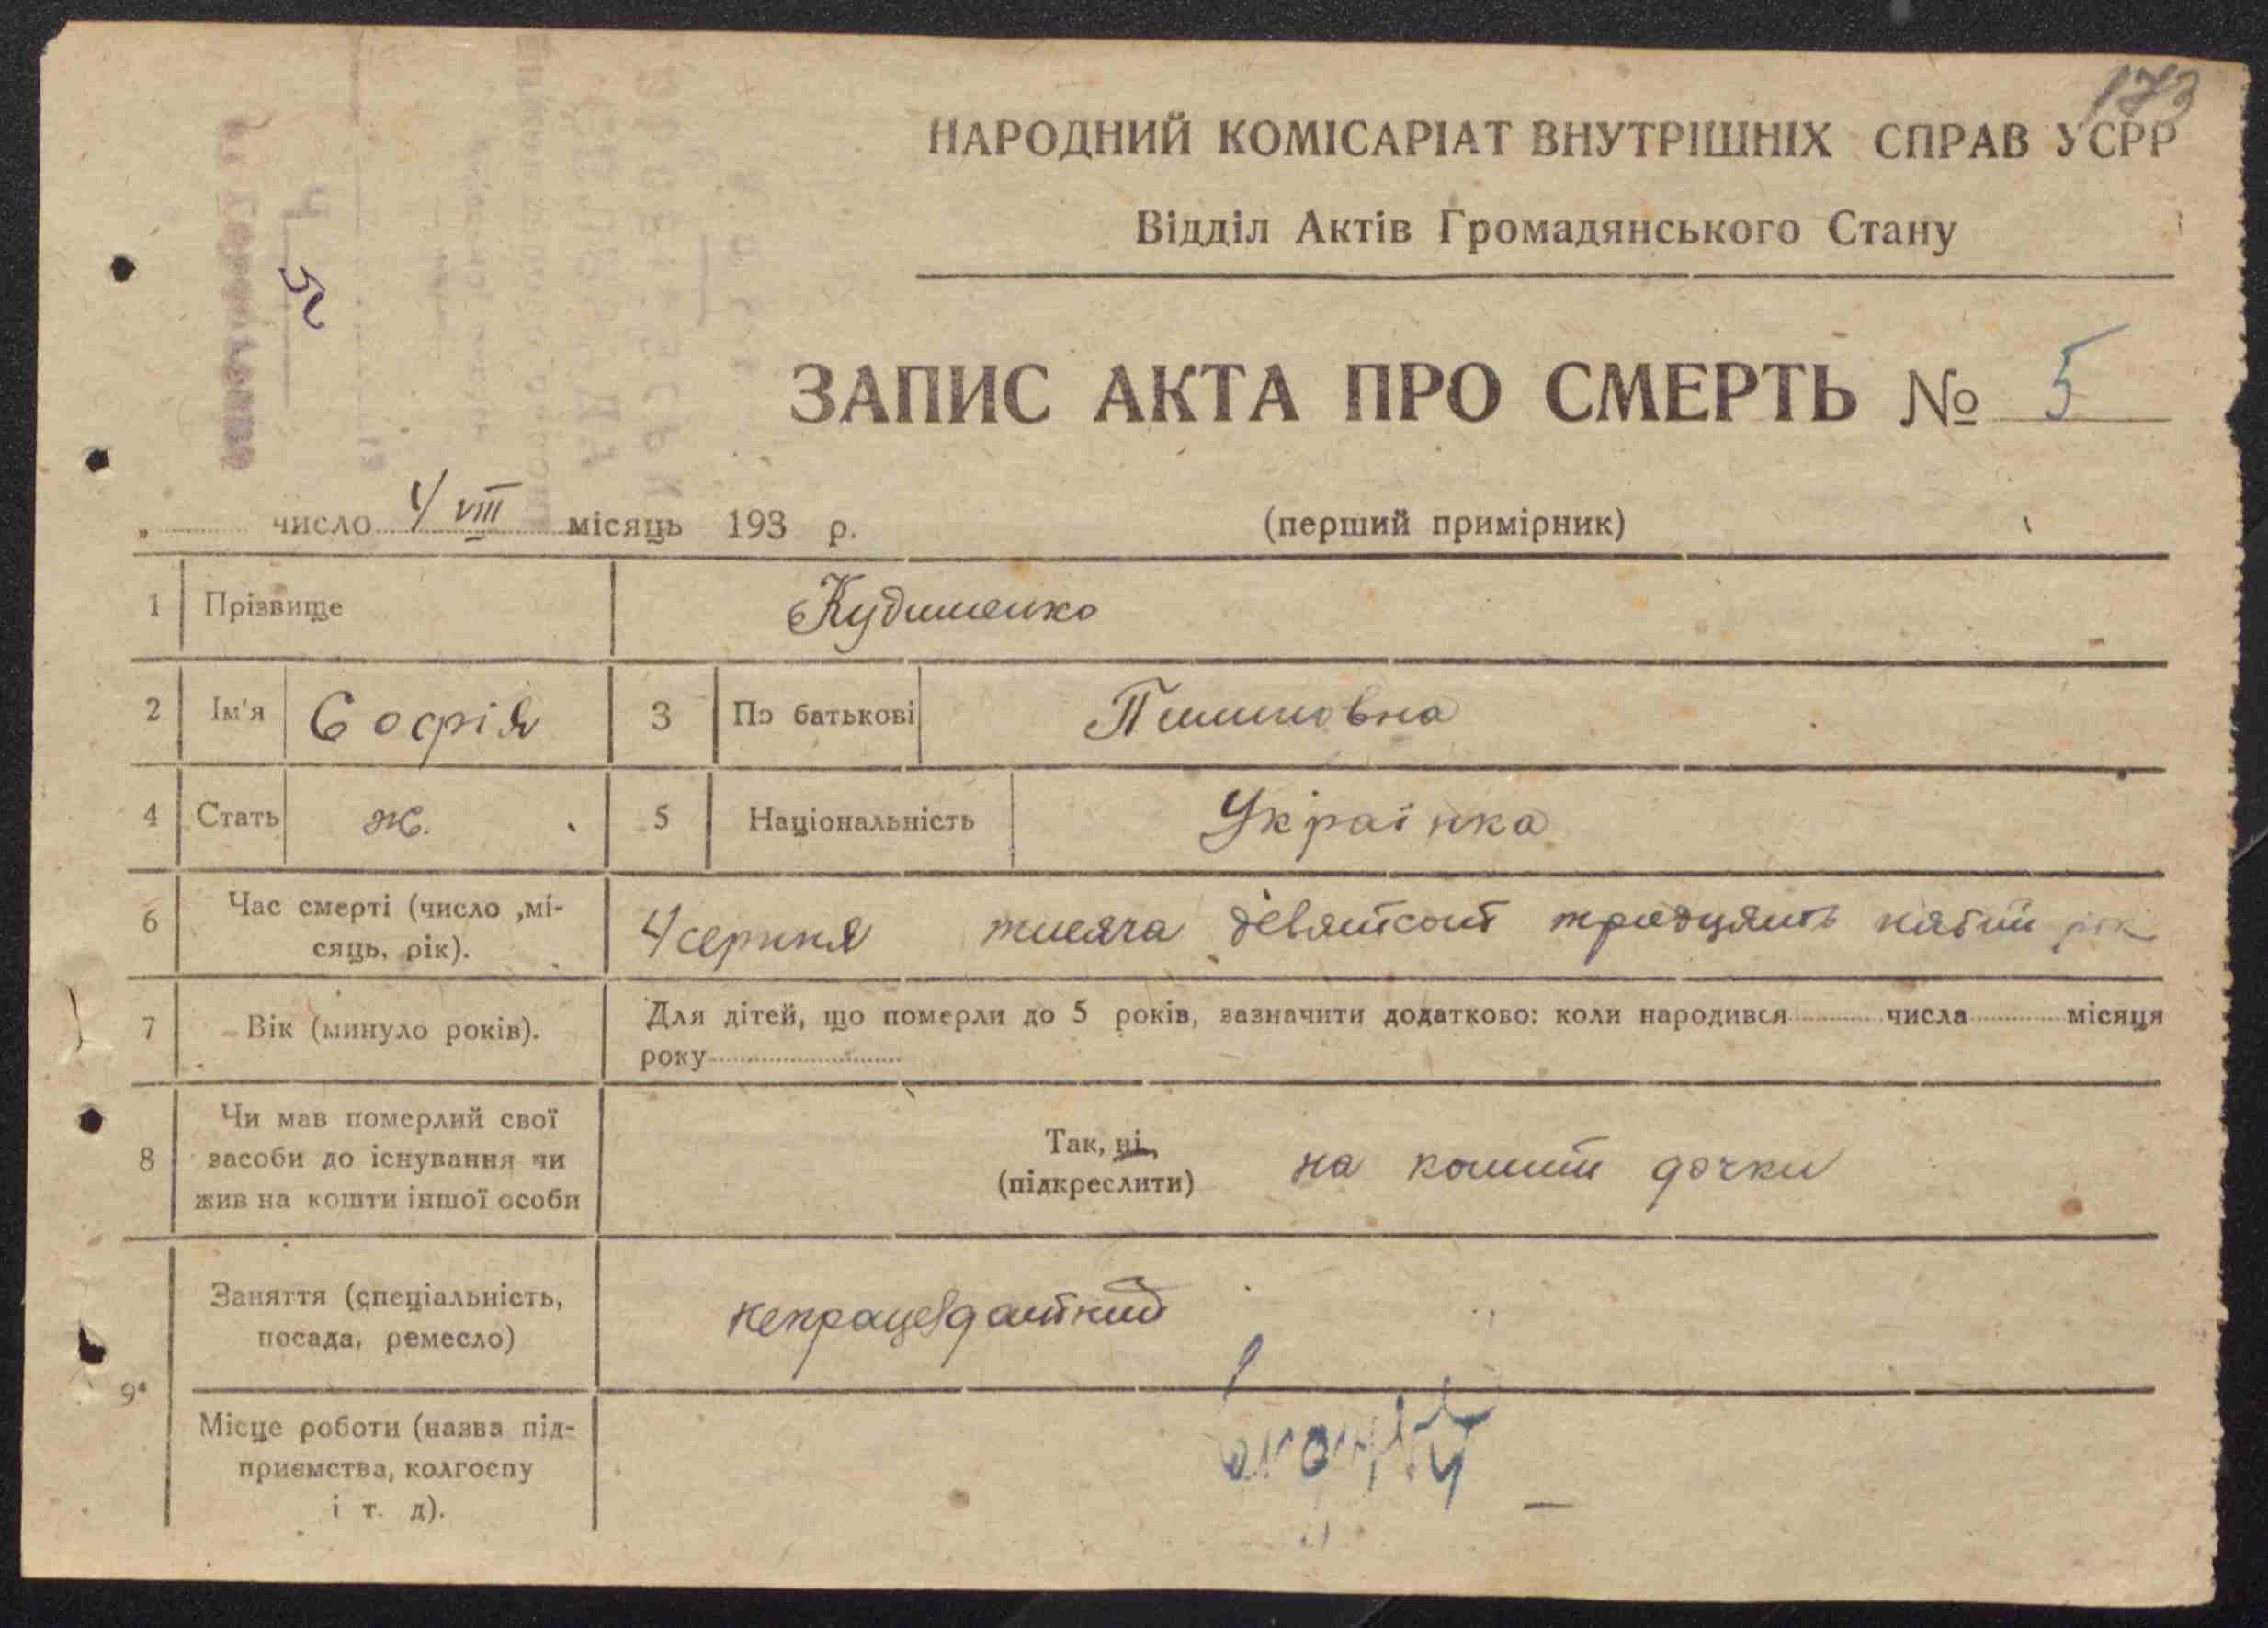 173
НАРОДНИЙ КОМІСАРІАТ ВНУТРІШНІХ СПРАВ УСРР
Відділ Актів Громадянського Стану
ЗАПИС АКТА ПРО СМЕРТЬ № 5
„ число 4/VIII місяць 193 р. (перший примірник)
1 Прізвище Кудименко
2 Ім'я Софія 3 По батькові
4 Стать ж. 5 Національність Українка
6 Час смерті (число ,мі-
сяць, рік). 4 серпня тисяча девятсот тридцять пятий рік
7 Вік (минуло років). Для дітей, що померли до 5 років, зазначити додатково: коли народився числа місяця
року
8 Чи мав померлий свої
засоби до існування чи
жив на кошти іншої особи
Так, ні,
(підкреслити) на кошти дочки
9а Заняття (спеціальність,
посада, ремесло) непрацездатний
Місце роботи (назва під-
приємства, колгоспу
і т. д).